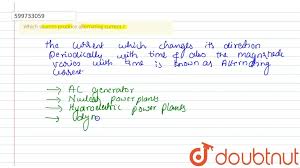 599733059
Which sources produce alternating current?
The current which changes its direction
Periodically with time & also the magnitude
varies with time is known as Alternating
Current.
→ AC generator
→ Nuclear power plants
→ Hydroelectric power plants
→ Odyno
doubtnut